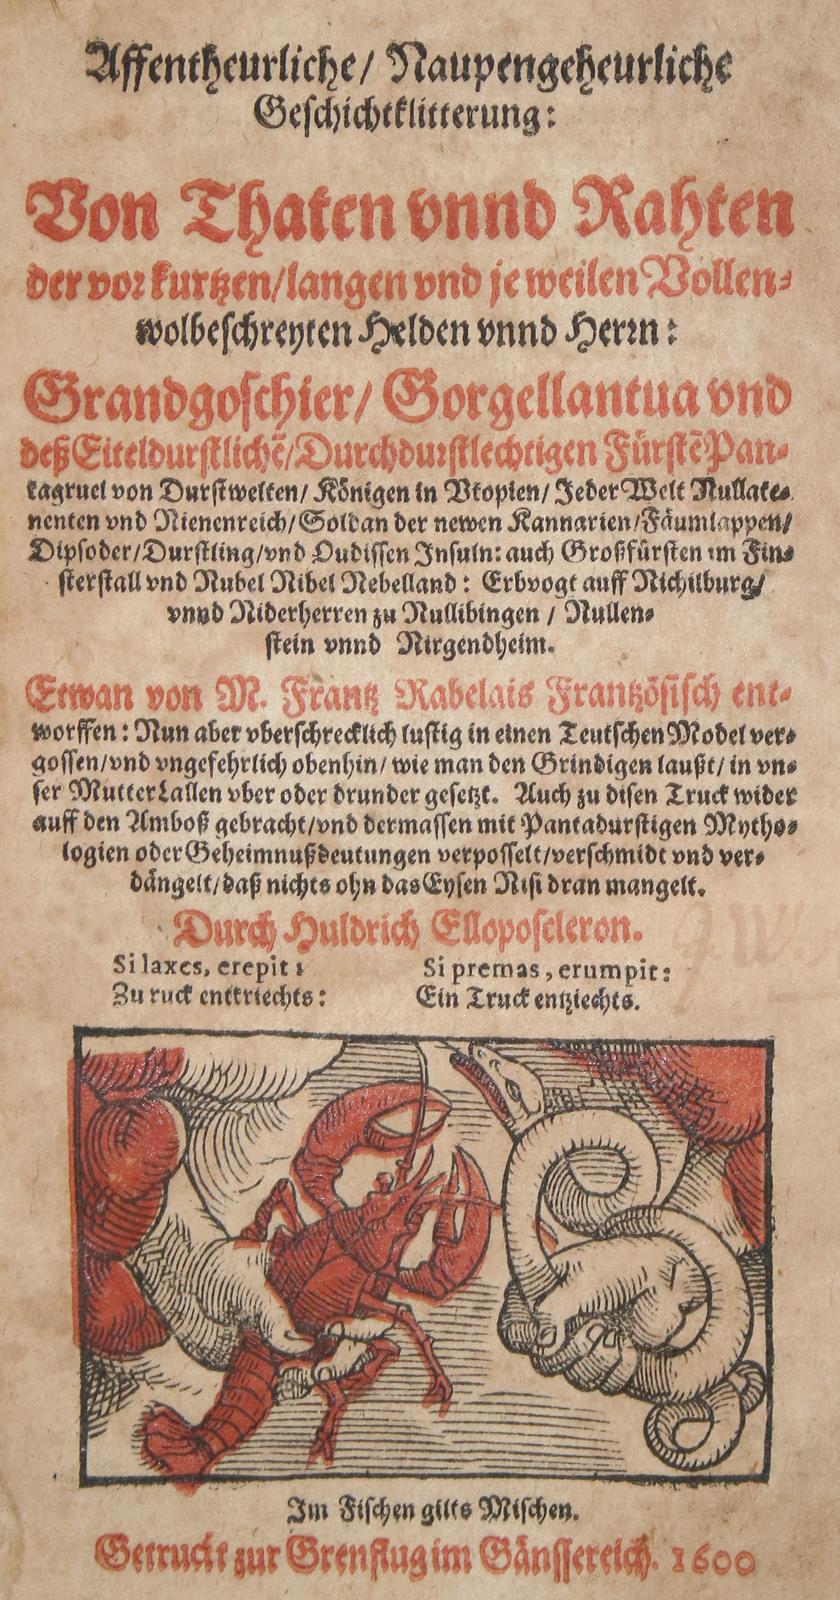 Affentheurliche/ Naupengeheurliche
Geschichtklitterung:
Von Thaten vnnd Rahten
der vor kurtzen/langen vnd je weilen Vollen-
wolbeschreyten Helden vnnd Herrn:
Grandgoschier/ Gorgellantua vnd
deß Eiteldurstlichē/Durchdurstlechtigen Fürstē Pan-
tagruel von Durstwelten/ Königen in Vtopien/ Jeder Welt Nullate-
nenten vnd Nienenreich/Soldan der newen Kannarien/Fäumlappen/
Dipsoder/Durstling/vnd Oudissen Insuln: auch Großfürsten im Fin-
sterstall vnd Nubel Nibel Nebelland: Erbvogt auff Nichilburg/
vnnd Niderherren zu Nullibingen / Nullen-
stein vnnd Nirgendheim.
Etwan von M. Frantz Rabelais Frantzösisch ent-
worffen: Nun aber vberschrecklich lustig in einen Teutschen Model ver-
gossen/vnd vngefehrlich obenhin/ wie man den Grindigen laußt/ in vn-
ser MutterLallen vber oder drunder gesetzt. Auch zu disen Truck wider
auff den Amboß gebracht/vnd dermassen mit Pantadurstigen Mytho-
logien oder Geheimnußdeutungen verposselt/verschmidt vnd ver-
dängelt/daß nichts ohn das Eysen Nisi dran mangelt.
Durch Huldrich Elloposcleron.
Si laxes, erepit: Si premas, erumpit:
Zu ruck entkriechts: Ein Truck entziechts.
Im Fischen gilts Mischen.
Getruckt zur Grenflug im Gänsserich. 1600